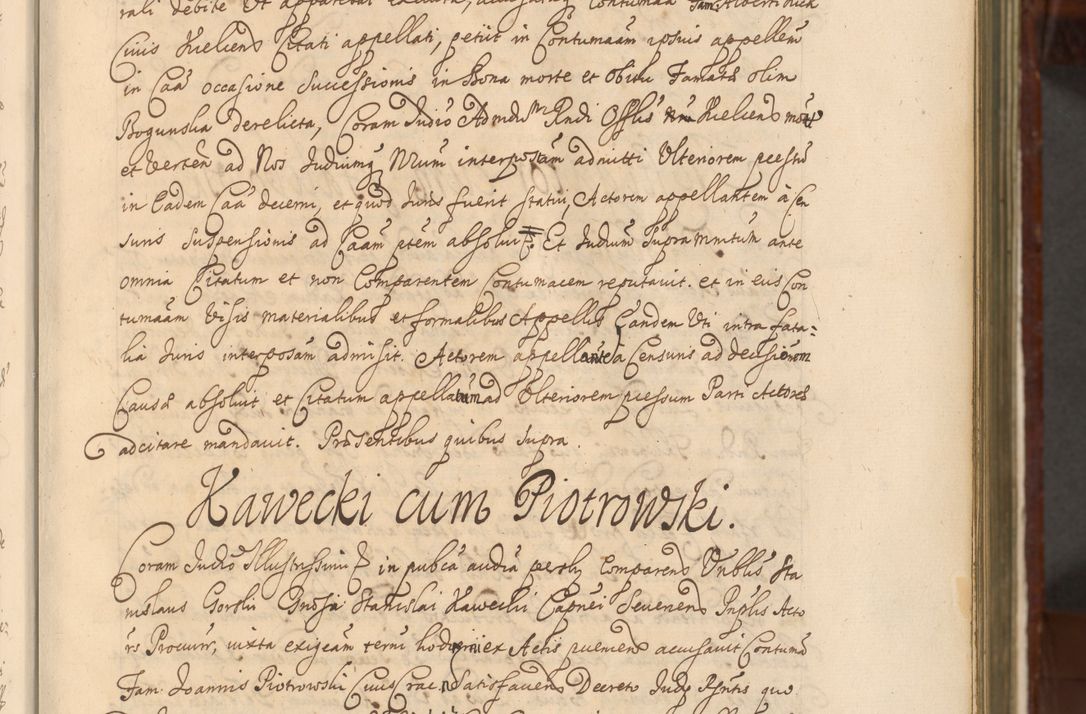 rali debite Ut apparebat executa, accusatq Contumaa Fam Alberti Duch
Civis Kielcens Citati appellati, petiit in Contumaam ipsius appellem
in Caa occasione Successionis in Bona morte et obitu Famatæ olim
Bogunska derelicta, Coram Judio Admdu Rndi Offlis Kielcens mot
et verten ad Nos Judiumq Nrum interpositam admitti Ulteriorem pcessu
in Eadem Caa decerni, et quod Juris fuerit statui, Actorem appellantem à Cen
suris Suspensionis ad Caam ptem absolui. Et Judium Supra mnitum ante
omnia Citatum et non Comparentem Contumacem reputavit. et in eius Con
tumaam Visis materialibus et formalibus Appellis Eandem Uti intra fata-
lia Juris interposam admisit. Actorem appellante à Censuris ad decisionem
Causæ absoluit et Citatum appellatum ad Ulteriorem pcessum Parti Actorea
adcitare mandavit. Præsentibus quibus supra.
Kawecki cum Piotrowski.
Coram Judio Illustrissimi P in pubca audia psnly Comparens Vnblis Sta
nislaus Gorski Gnosi Stanislai Kawecki Capnei Severiens Inplis Acto
ris Procurr, iuxta exigeam termi hodierni ex Actis pueniens accusavit Contuma
Fam Joannis Piotrowski Civis rac n Satisfaciens Decreto Judy Psntis quo